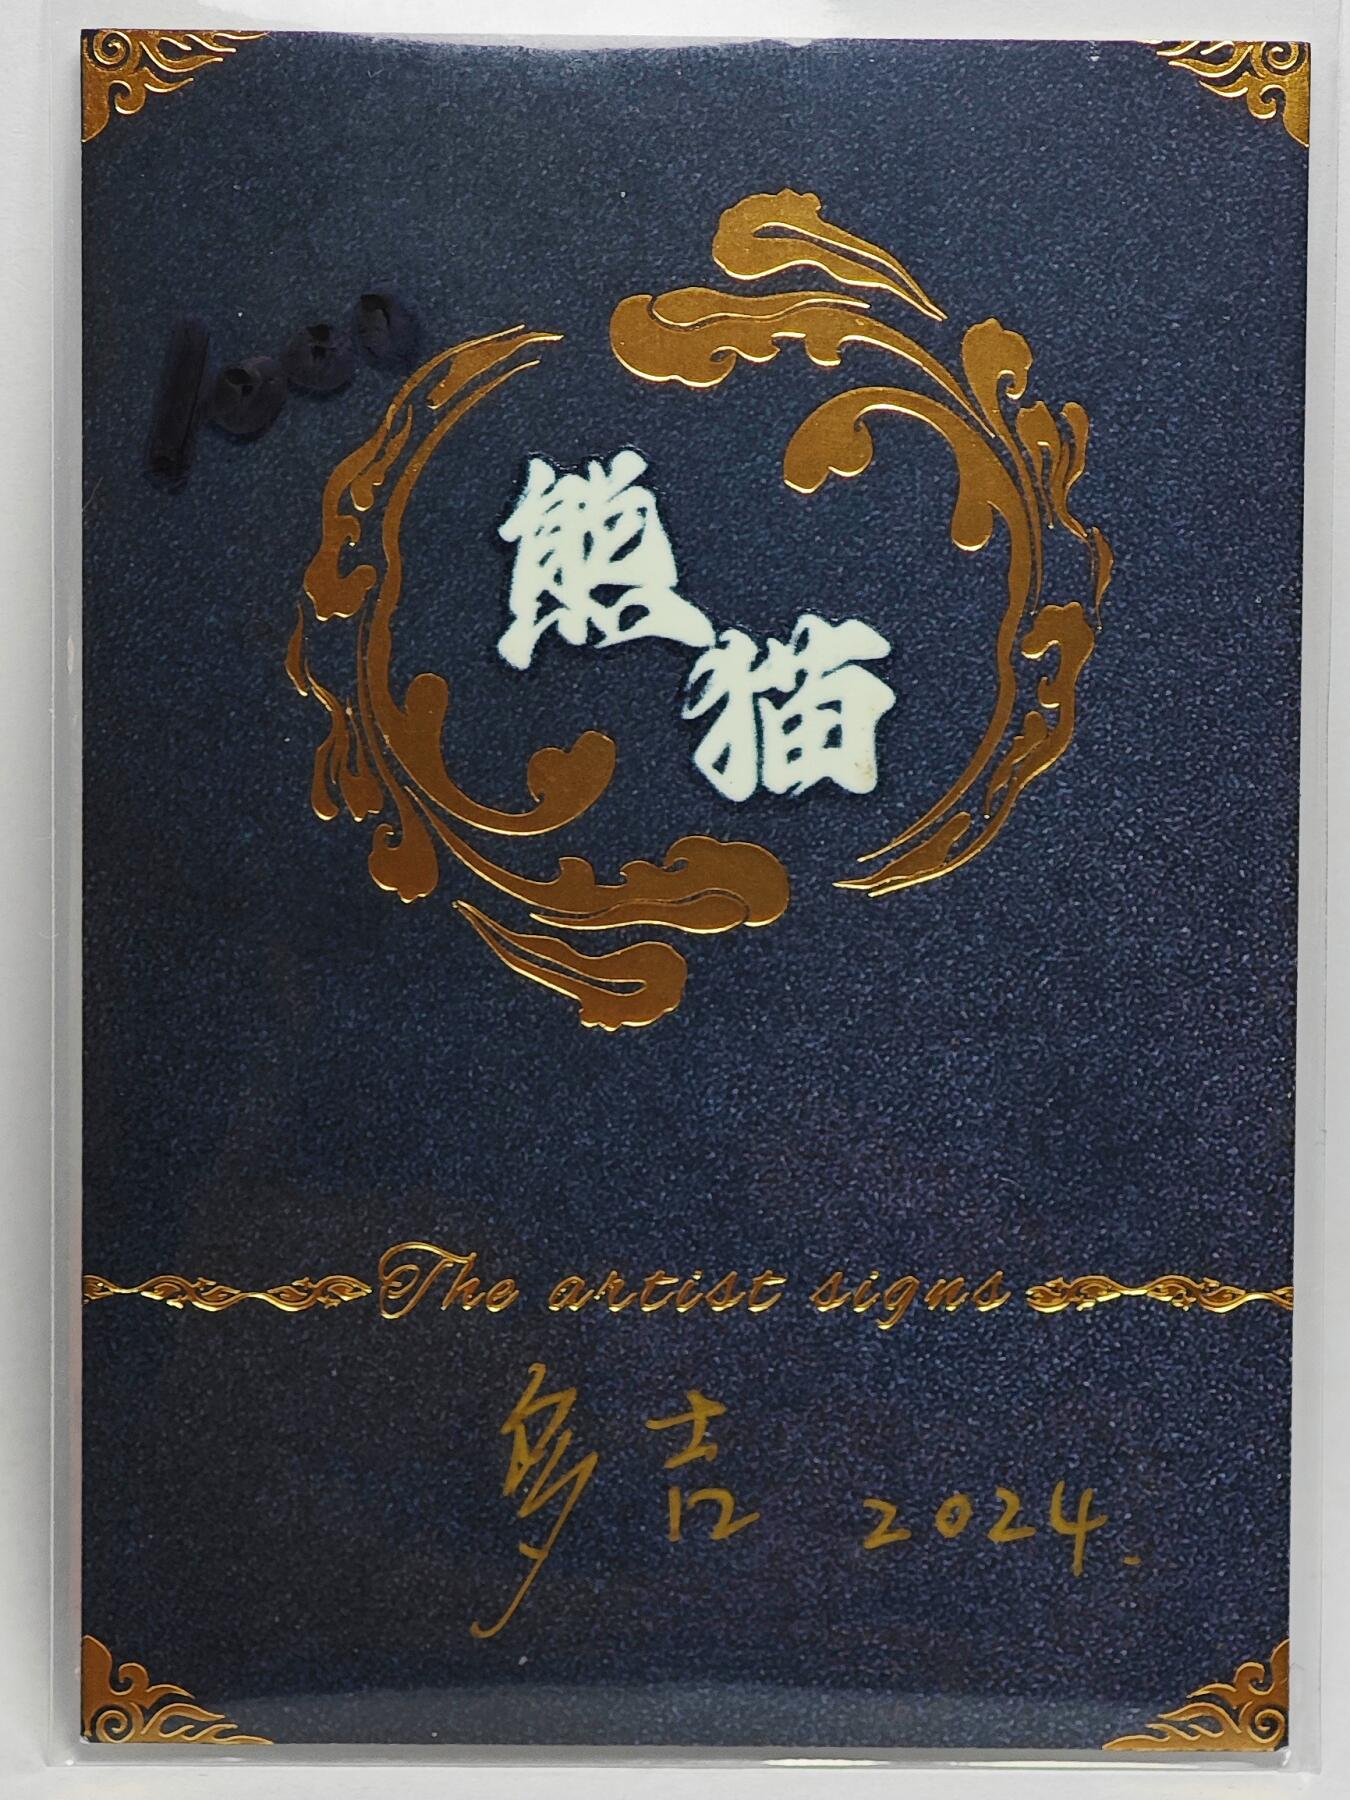 1000
熊猫
The artist signs
多吉 2024.